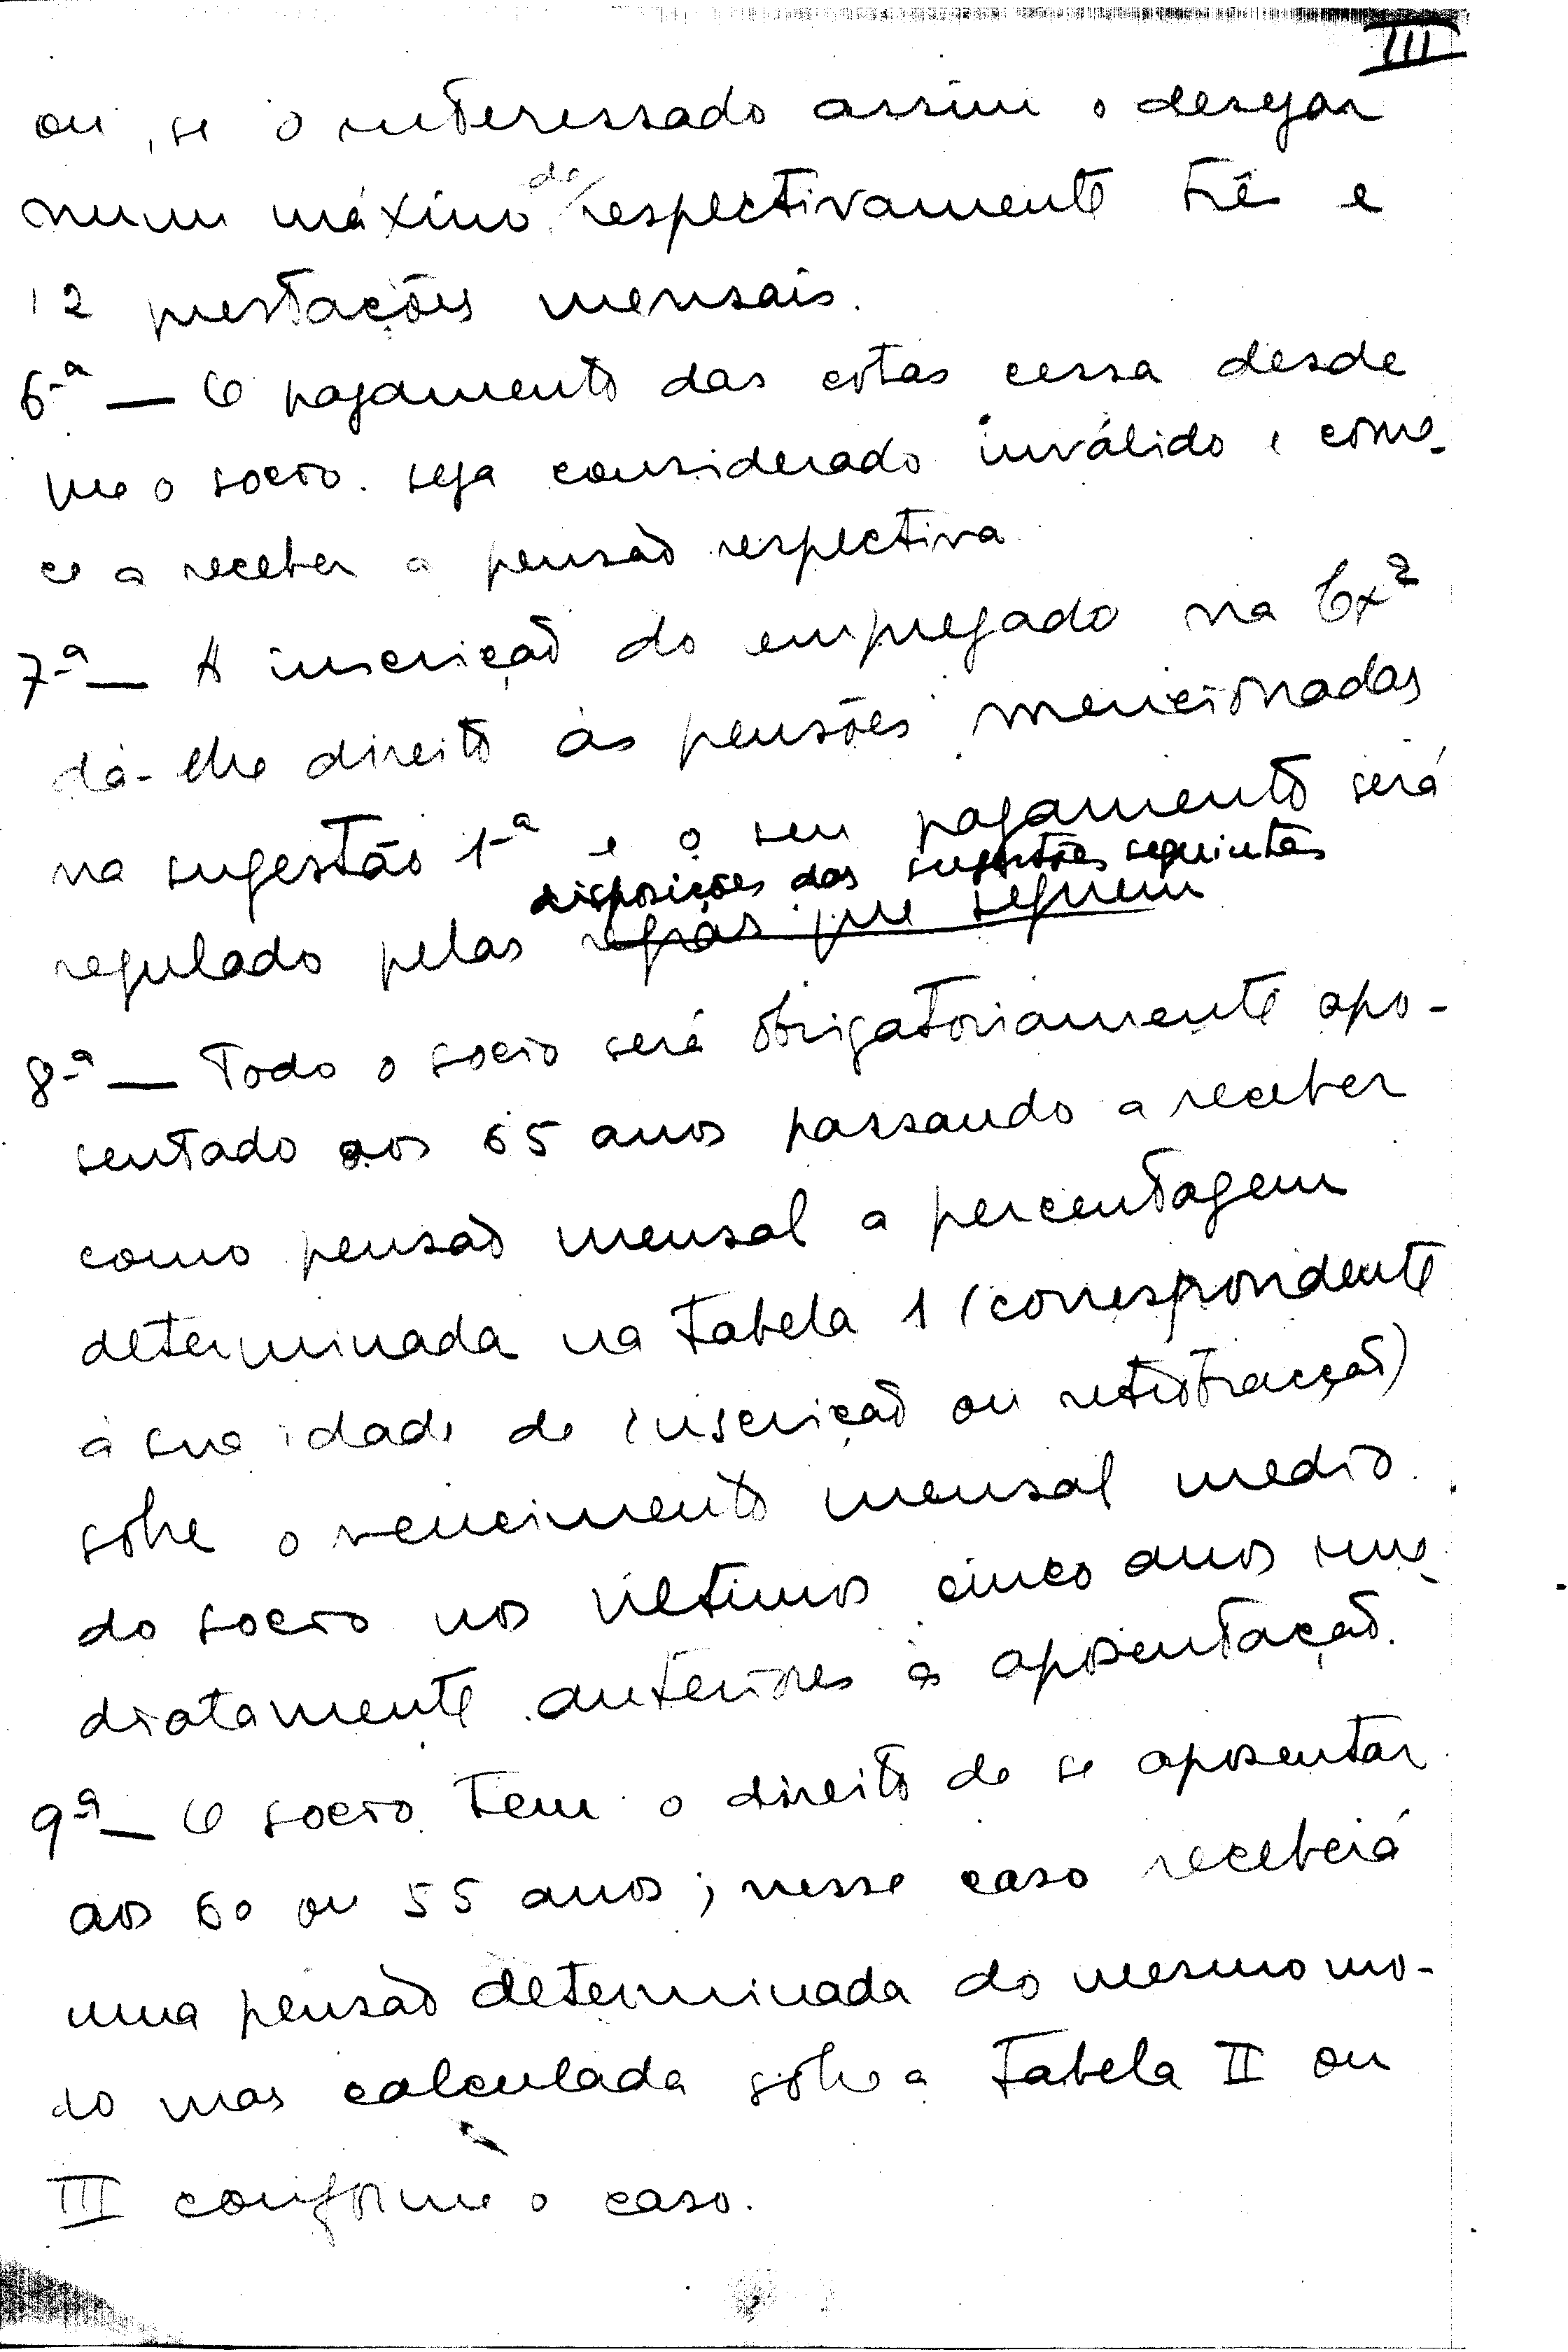 III
ou, se o interessado assim o desejar
num máximo de respectivamente três e
12 prestações mensais.
6ª — O pagamento das cotas cessa desde
que o socio seja considerado inválido e come-
ce a receber a pensão respectiva
7ª — A inscrição do empregado na Cxª
dá-lhe direito às pensões mencionadas
na sugestão 1ª e o seu pagamento será
disposições das sugestões seguintes
regulado pelas regras que seguem
8ª — Todo o socio será obrigatoriamente apo-
sentado aos 65 anos passando a receber
como pensão mensal a percentagem
determinada na tabela 1 (correspondente
à sua idade de inscrição ou retrotracção)
sôbre o vencimento mensal medio
do socio nos últimos cinco anos ime-
diatamente anteriores à aposentação.
9ª — O socio tem o direito de se aposentar
aos 60 ou 55 anos; nesse caso receberá
uma pensão determinada do mesmo mo-
do mas calculada sôbre a tabela II ou
III conforme o caso.